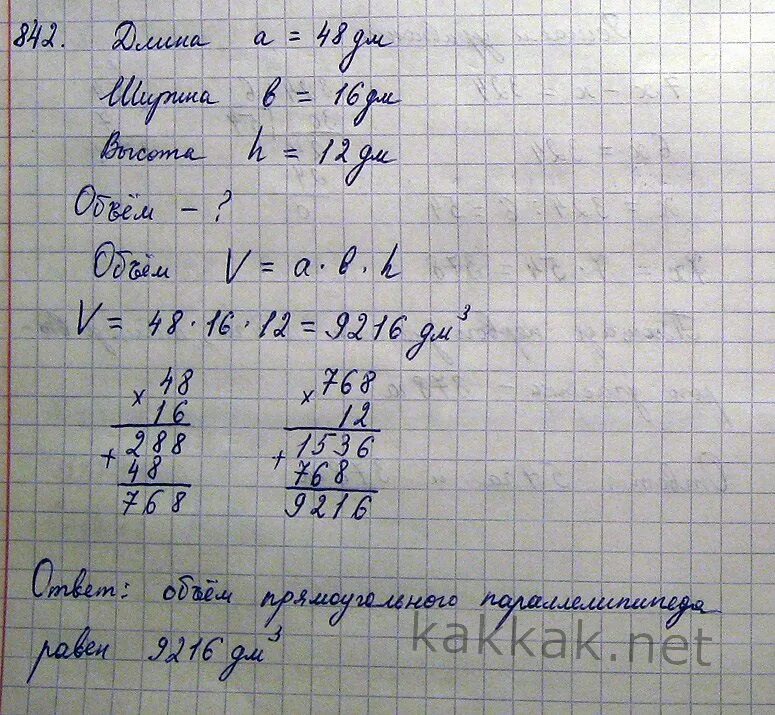 842. Длина a = 48 дм
Ширина b = 16 дм
Высота h = 12 дм
Объём - ?
Объём V = a · b · h
V = 48 · 16 · 12 = 9216 дм³
× 48
16
+ 288
48
768
× 768
12
+ 1536
768
9216
Ответ: объём прямоугольного параллелипипеда
равен 9216 дм³
kakkak.net